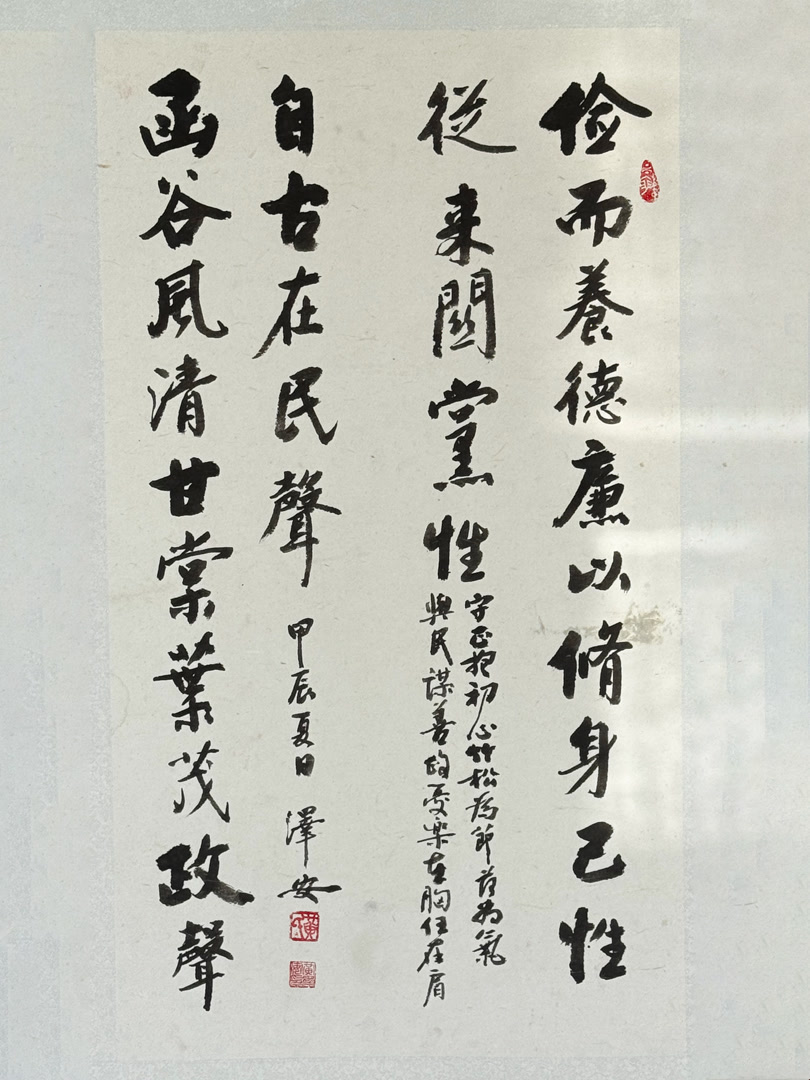 俭而養德廉以脩身己性
從来關黨性
守正抱初心竹松為節為氣
與民謀善政憂樂在胸任在肩
函谷風清甘棠葉茂政聲
自古在民聲
甲辰夏日 澤安